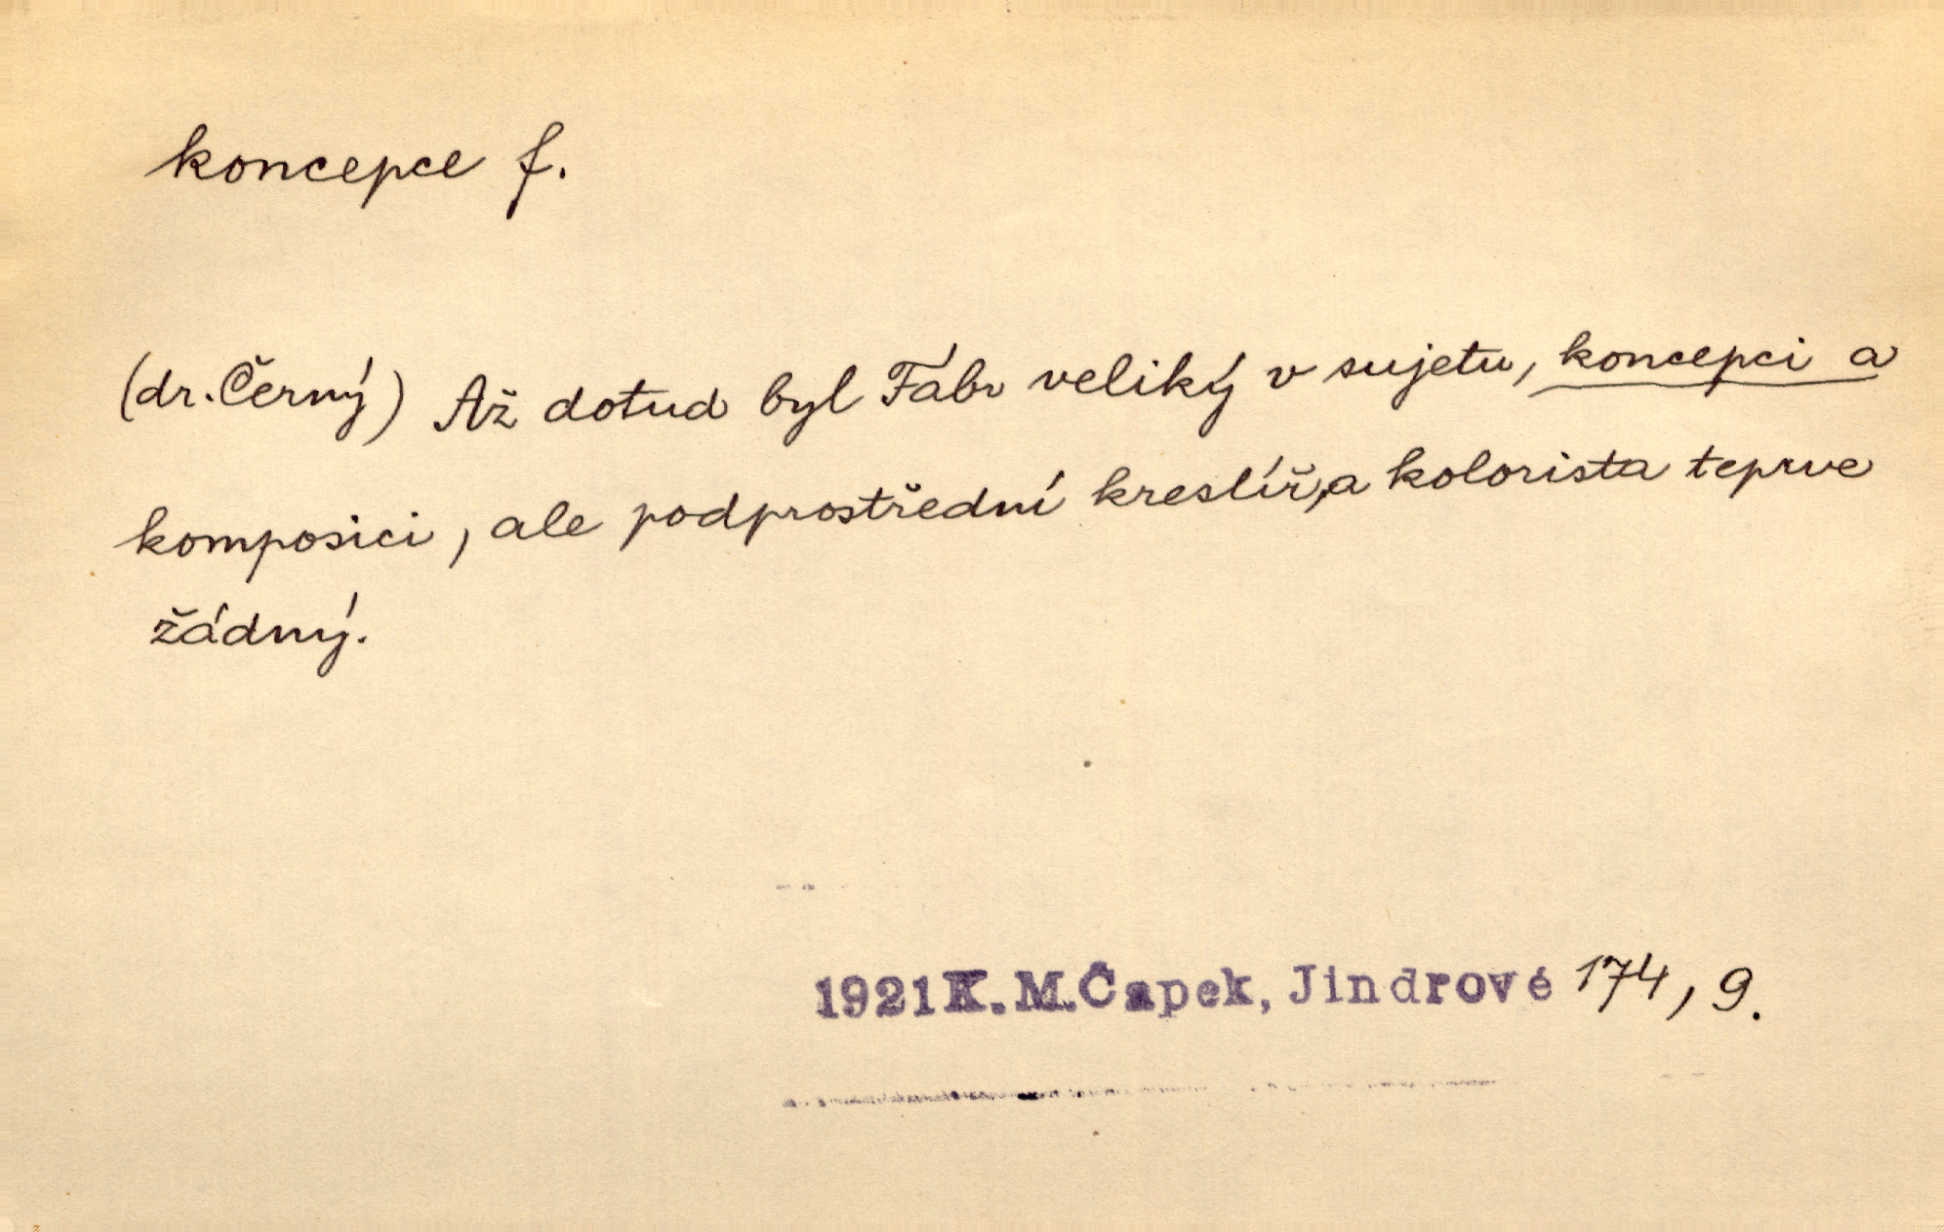 koncepce f.
(dr. Černý) Až dotud byl Fábr veliký v sujetu, koncepci a
komposici, ale podprostřední kreslíř, a kolorista teprve
žádný.
1921 K. M. Čapek, Jindrové 174, 9.